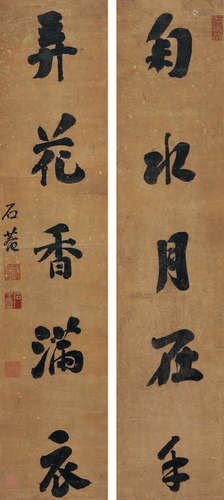 匊水月在手
弄花香滿衣
石菴